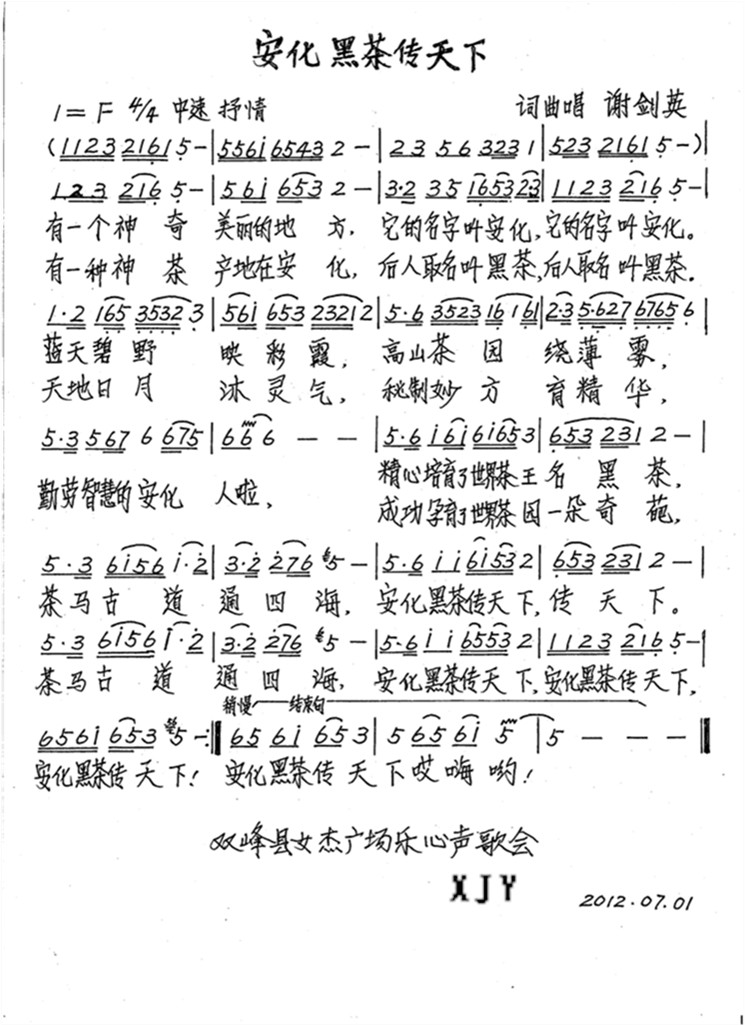 安化黑茶传天下
1=F 4/4 中速 抒情 词曲唱 谢剑英
(1123 2161 5 - | 556i 6543 2 - | 23 56 323 1 | 523 2161 5 - )
123 216 5 - | 561 653 2 - | 3·2 35 1653 23 | 1123 216 5 - |
有一个神奇 美丽的地方，它的名字叫安化，它的名字叫安化。
有一种神茶 产地在安化，后人取名叫黑茶，后人取名叫黑茶。
1·2 165 3532 3 | 56i 653 2321 2 | 5·6 3523 16 161 | 2·3 5·627 6765 6 |
蓝天碧野 映彩霞，高山茶园 绕薄雾，
天地日月 沐灵气，秘制妙方 育精华，
5·3 567 6 675 | 6 6 6 - - | 5·6 i6i 6i65 3 | 653 231 2 - |
勤劳智慧的安化 人啦，精心培育了世界茶王名黑茶，
成功孕育了世界茶园一朵奇葩，
5·3 6i56 i·2 | 3·2 276 5 - | 5·6 i i 6i53 2 | 653 231 2 - |
茶马古道 通四海，安化黑茶传天下，传天下。
5·3 6i56 i·2 | 3·2 276 5 - | 5·6 i i 6553 2 | 1123 216 5 - |
茶马古道 通四海，安化黑茶传天下，安化黑茶传天下，
稍慢 结束句
656i 653 5 - :‖ 65 6i 653 3 | 5 65 6i 5 | 5 - - - ‖
安化黑茶传天下！安化黑茶传天下哎嗨哟！
双峰县女杰广场乐心声歌会
XJY 2012.07.01